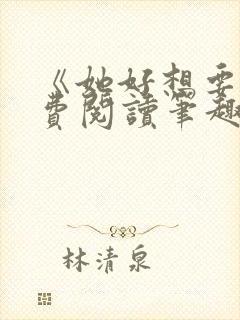 《她好想要
費閱讀筆趣
林清泉